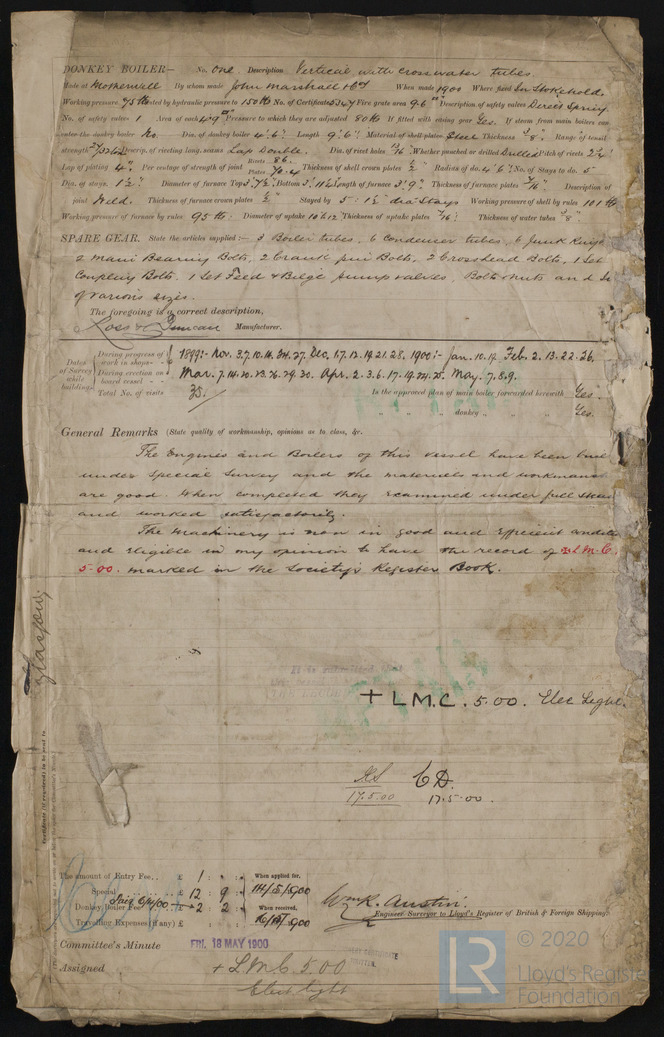 DONKEY BOILER— No. One Description Vertical, with cross water tubes
Made at Motherwell By whom made John Marshall & Co When made 1900 Where fixed In Stokehold
Working pressure 75 lb tested by hydraulic pressure to 150 lb No. of Certificate Fire grate area 9.6 Description of safety valves Direct Spring
No. of safety valves 1 Area of each 4.9 Pressure to which they are adjusted 80 lb If fitted with easing gear Yes. If steam from main boilers can
enter the donkey boiler No. Dia. of donkey boiler 4'.6" Length 9'.6" Material of shell plates Steel Thickness 3/8" Range of tensil
strength Descrip. of riveting long. seams Lap Double. Dia. of rivet holes 13/16" Whether punched or drilled Drilled Pitch of rivets 2 3/4"
Lap of plating 4" Per centage of strength of joint Rivets 86. Plates 70.4 Thickness of shell crown plates 1/2" Radius of do. 4'.6" No. of Stays to do. 5
Dia. of stays. 1 1/2" Diameter of furnace Top 3'.7 1/2" Bottom 3'.11 1/2" Length of furnace 3'.9" Thickness of furnace plates 7/16" Description of
joint Weld. Thickness of furnace crown plates 1/2" Stayed by 5: 1 1/2" dia Stays Working pressure of shell by rules 101 lb
Working pressure of furnace by rules 95 lb. Diameter of uptake 10 & 12" Thickness of uptake plates 7/16" Thickness of water tubes 3/8"
SPARE GEAR. State the articles supplied:— 3 Boiler tubes, 6 condenser tubes, 6 Junk Ring
2 main Bearing Bolts, 2 Crank pin Bolts, 2 Crosshead Bolts, 1 Set
Coupling Bolts. 1 Set Feed & Bilge pump valves, Bolts & nuts and
of various sizes.
The foregoing is a correct description,
Ross & Duncan Manufacturer.
Dates of Survey while building
During progress of work in shops— 1899:- Nov. 3.7.10.14.24.27. Dec. 1.7.13.19.21.28. 1900:- Jan. 10.17. Feb. 2.13.22.26.
During erection on board vessel Mar. 7.14.20.23.26.29.30. Apr. 2.3.6.17.19.24.25. May. 7.8.9.
Total No. of visits 35. Is the approved plan of main boiler forwarded herewith Yes.
" " donkey " " " Yes.
General Remarks (State quality of workmanship, opinions as to class, &c.
The Engines and Boilers of this vessel have been buil
under Special Survey and the materials and workmans
are good. When completed they examined under full steam
and worked satisfactorily.
The machinery is now in good and efficient conditi
and eligible in my opinion to have the record of + L.M.C.
5-00. marked in the Society's Register Book.
Glasgow
It is submitted that
THE RECORD
+ L.M.C. 5.00. Elec Light.
C.D.
17.5.00 17.5.00.
The amount of Entry Fee.. £ 1 : " : " When applied for,
Special .. £ 12 : 9 : " 14/5/1900
Donkey Boiler Fee £ 2 : 2 : " When received,
Travelling Expenses (if any) £ 1900
Wm R. Austin.
Engineer Surveyor to Lloyd's Register of British & Foreign Shipping.
Committee's Minute FRI. 18 MAY 1900
Assigned + L.M.C. 5.00
Elect light
LR © 2020
Lloyd's Register
Foundation